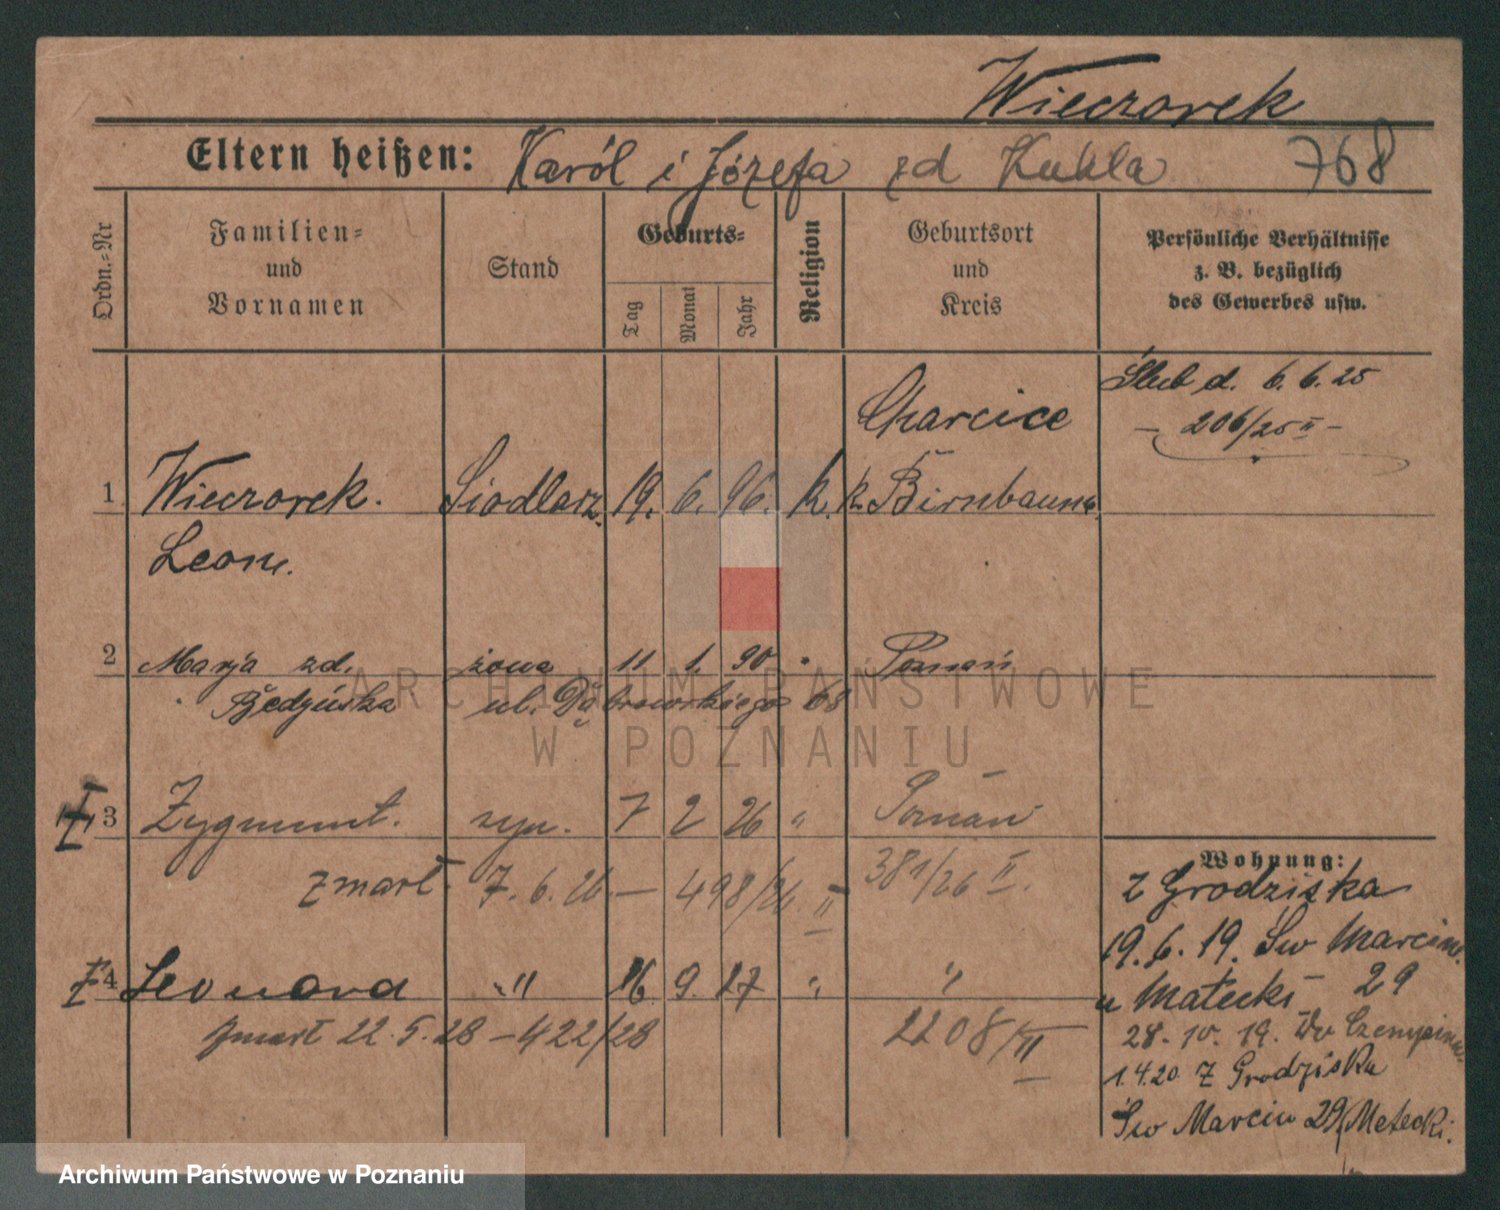 Wieczorek
Eltern heißen: Karól i Józefa zd Kukla 768
Ordn.=Nr
Familien=
und
Vornamen
Stand
Geburts=
Tag
Monat
Jahr
Religion
Geburtsort
und
Kreis
Persönliche Verhältnisse
z. B. bezüglich
des Gewerbes usw.
Ślub d. 6. 6. 25
– 206/25 II –
Charcice
1 Wieczorek. Siodlarz. 19. 6. 96. k. k. Birnbaum.
Leon.
2 Marja zd. żona 11 1. 90 " Poznań
Będzińska ul. Dąbrowskiego 68
ARCHIWUM PAŃSTWOWE
W POZNANIU
3 Zygmunt. syn. 7 2 26 " Poznań
zmarł 7. 6. 26. — 498/26 II 381/26 II.
4 Leonard " 16 9. 27 " "
zmarł 22. 5. 28 – 422/28 2208/II
Wohnung:
z Grodziska
19. 6. 19. Św Marcin.
u Matecki 29
28. 10. 19. Do Czempinia.
1.4.20 Z Grodziska
Św Marcin 29/Matecki.
Archiwum Państwowe w Poznaniu